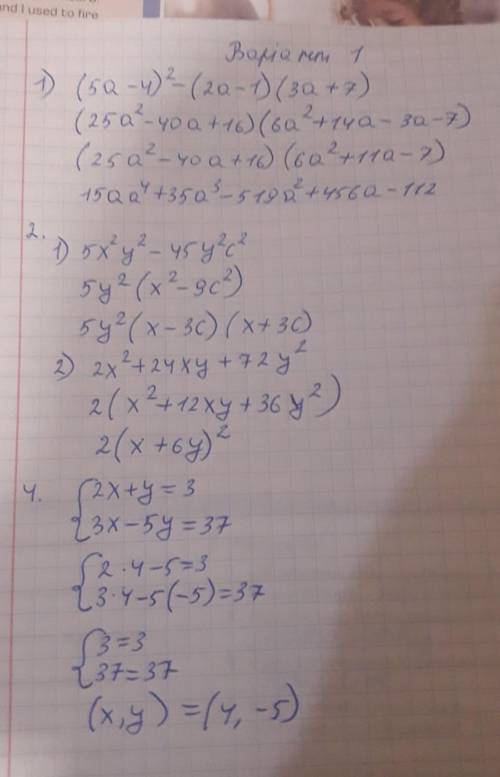 nd I used to fire
Варіант 1
1) (5a-4)²-(2a-1)(3a+7)
(25a²-40a+16)(6a²+14a-3a-7)
(25a²-40a+16)(6a²+11a-7)
150a⁴+35a³-519a²+456a-112
2.
1) 5x²y²-45y²c²
5y²(x²-9c²)
5y²(x-3c)(x+3c)
2) 2x²+24xy+72y²
2(x²+12xy+36y²)
2(x+6y)²
4. {2x+y=3
{3x-5y=37
{2·4-5=3
{3·4-5(-5)=37
{3=3
{37=37
(x,y)=(4,-5)